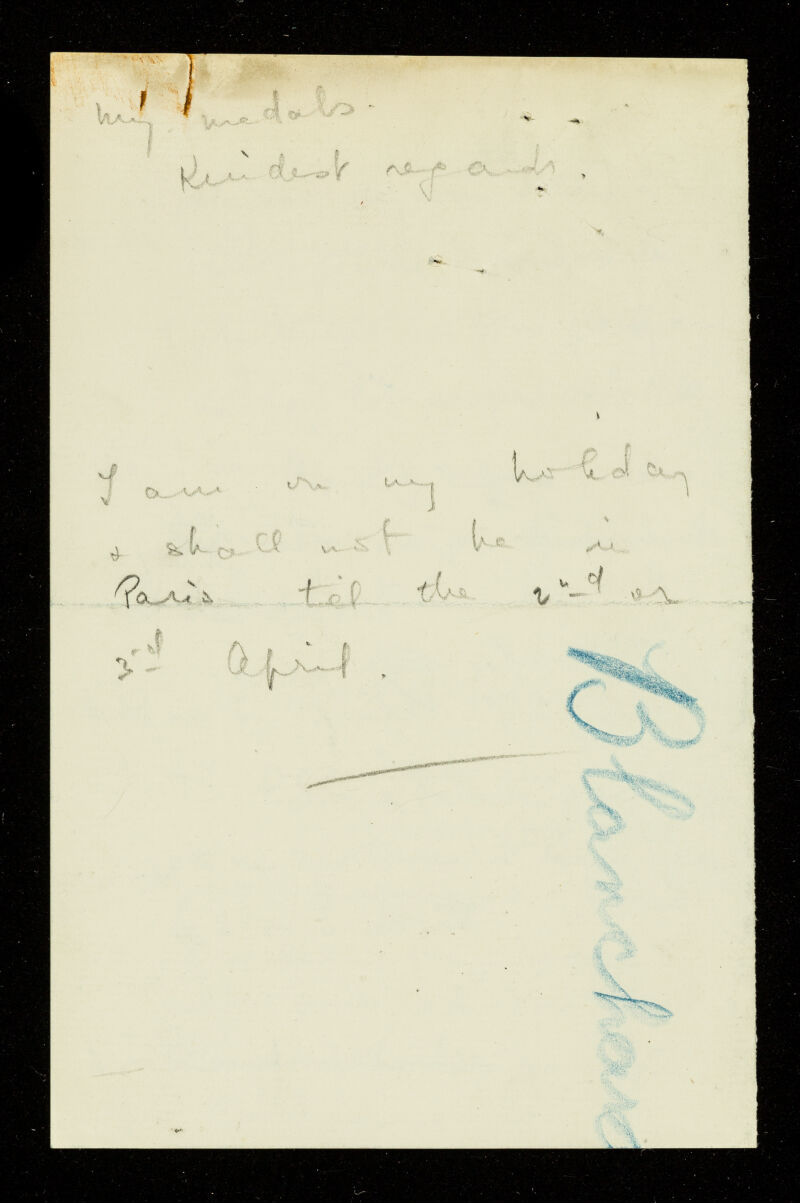 my medals.
Kindest regards.
I am on my holiday
& shall not be in
Paris till the 2nd or
3rd April.
Blanchard